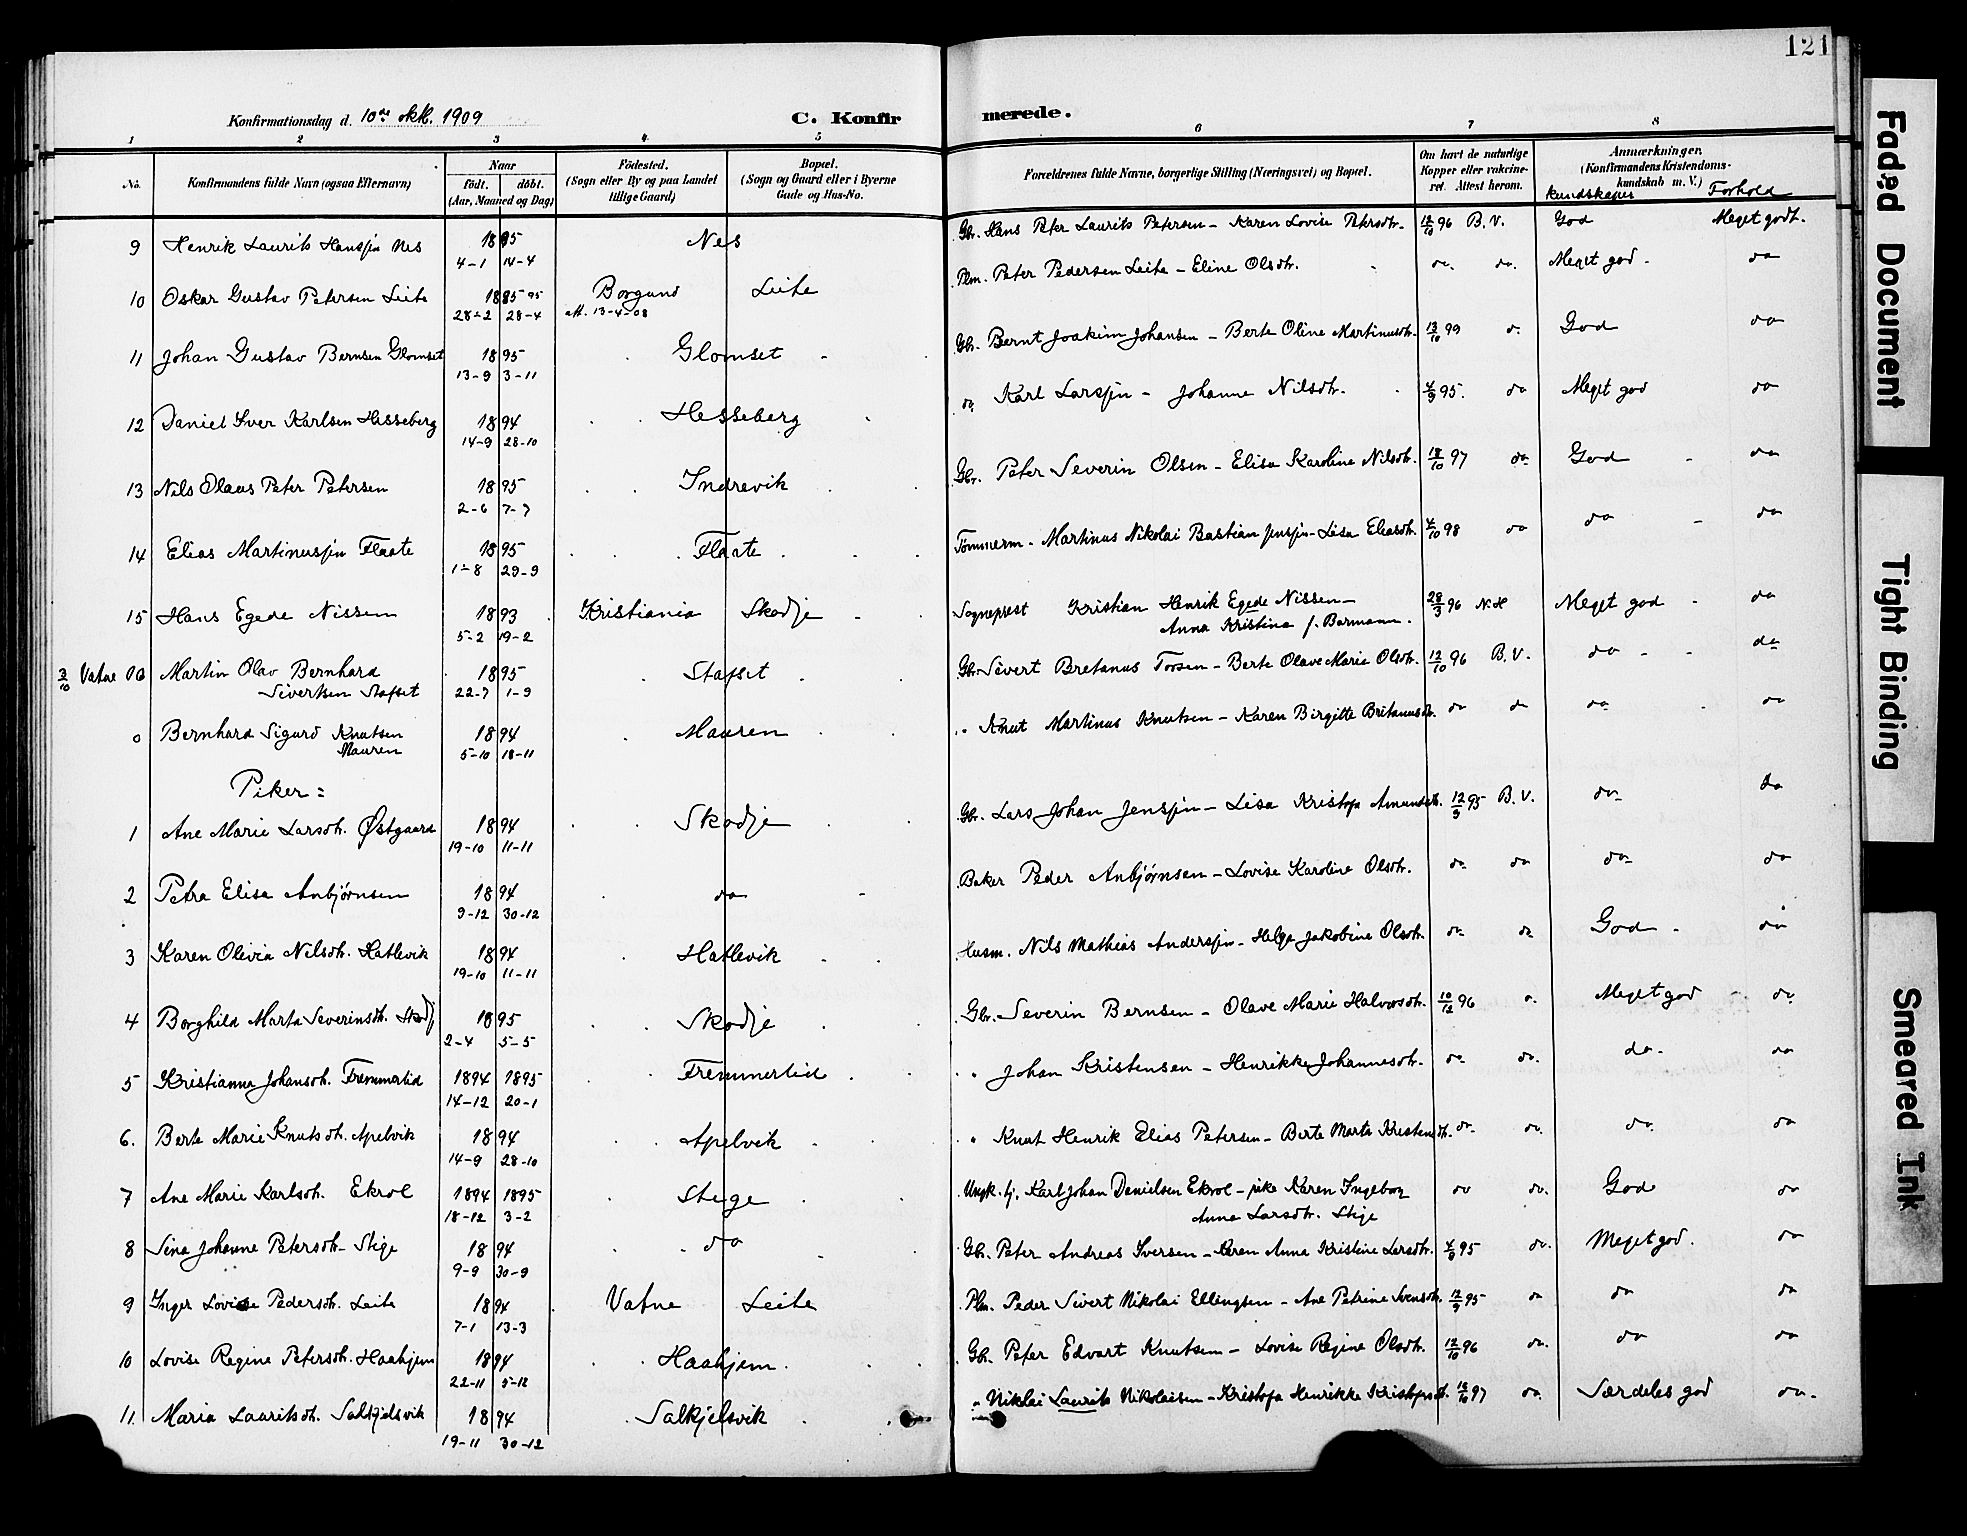 121
Konfirmationsdag d. 10de okt. 1909 C. Konfirmerede.
1 2 3 4 5 6 7 8
No. Konfirmandens fulde Navn (ogsaa Efternavn) Naar födt. döbt. (Aar, Maaned og Dag) Födested. (Sogn eller By og paa Landet tillige Gaard) Bopæl. (Sogn og Gaard eller i Byerne Gade og Hus-No. Forældrenes fulde Navne, borgerlige Stilling (Næringsvei) og Bopæl. Om havt de naturlige Kopper eller vakcineret. Attest herom. Anmærkninger. (Konfirmandens Kristendomskundskab m. V.) kundskaper Forhold
9 Henrik Laurits Hanssjn Nes 1895 4-1 14-4 Nes Gbr. Hans Peter Laurits Petersen - Karen Lovise Petersdtr. 12/10 96 B.V. God Meget godt.
10 Oskar Gustav Petersen Leite 1895 95 28-2 28-4 Borgund att. 13-4-08 Leite Plm. Peter Pedersen Leite - Eline Olsdtr. do. do. Meget god. do
11 Johan Gustav Bernsen Glomset 1895 13-9 3-11 Glomset Gbr. Bernt Joakim Johansen - Berte Oline Martinusdtr. 13/10 99 d. God do
12 Daniel Iver Karlsen Hesseberg 1894 14-9 28-10 Hesseberg do Karl Larssjn - Johanne Nilsdtr. 4/9 95. do Meget god do
13 Nils Olaus Peter Petersen 1895 2-6 7-7 Indrevik Gbr. Peter Severin Olsen - Elisa Karoline Nilsdtr. 18/10 97 do God do
14 Elias Martinussjn Flaate 1895 1-8 29-9 Flaate Tømmerm. Martinus Nikolai Bastian Jenssjn - Lisa Eliasdtr. 4/10 98 do do do
15 Hans Egede Nissen 1893 5-2 19-2 Kristiania Skodje Sogneprest Kristian Henrik Egede Nissen -
Anna Kristina f. Bormann. 28/3 96 N.H Meget god do
3/10 Vatne Martin Olav Bernhard
Sivertsen Stafset 1895 22-7 1-9 Stafset Gbr. Sivert Bretanus Torsen - Berte Olave Marie Olsdtr. 12/10 96 B.V. do do
0 Bernhard Sigurd Knutsen
Mauren 1894 5-10 18-11 Mauren " Knut Martinus Knutsen - Karen Birgitte Britanusdtr. do do do do
Piker =
1 Ane Marie Larsdtr. Østgaard 1894 19-10 11-11 Skodje Gbr. Lars Johan Jenssjn - Lisa Kristofa Amundsdtr. 12/9 95 B.V. do do
2 Petra Elisa Anbjørnsen 1894 9-12 30-12 do Baker Peder Anbjørnsen - Lovise Karoline Olsdtr. do do do do
3 Karen Olivia Nilsdtr. Hatlevik 1894 19-10 11-11 Hatlevik Husm. Nils Mathias Anderssjn - Helga Jakobine Olsdtr. do do God do
4 Borghild Marta Severinsdtr. Skodj 1895 2-4 5-5 Skodje Gbr. Severin Bernsen - Olave Marie Halvorsdtr. 10/12 96 d. Meget god do
5 Kristianna Johansdtr. Fremmerlid 1894 1895 14-12 20-1 Fremmerlid " Johan Kristensen - Henrikke Johannesdtr. do do. do. do
6. Berte Marie Knutsdtr. Apelvik 1894 14-9 28-10 Apelvik " Knut Henrik Elias Petersen - Berte Marta Kristensdtr. do. do. do. do
7 Ane Marie Karlsdtr. Ekrol 1894 1895 18-12 3-2 Stige Ungk. tj. Karl Johan Danielsen Ekrol - pike Karen Ingeborg
Anna Larsdtr. Stige do do. God do
8 Sina Johanne Petersdtr. Stige 1894 9-9 30-9 do Gbr. Peter Andreas Iversen - Karen Anna Kristine Larsdtr. 4/9 95 do. Meget god. do
9 Inger Lovise Pedersdtr. Leite 1894 7-1 13-3 Vatne Leite Plm. Peder Sivert Nikolai Ellingsen - Ane Petrine Svensdtr. 12/9 95 do do do
10 Lovise Regine Petersdtr. Haahjem 1894 22-11 5-12 Haahjem. Gbr. Peter Edvart Knutsen - Lovise Regine Olsdtr. 12/10 96 do. do do
11. Maria Lauritsdtr. Salkjelsvik 1894 19-11 30-12 Salkjelsvik " Niklai Laurits Nikolaisen - Kristofa Henrikke Kristofersd. 18/10 97 do Særdeles god do.
Faded Document
Tight Binding
Smeared Ink